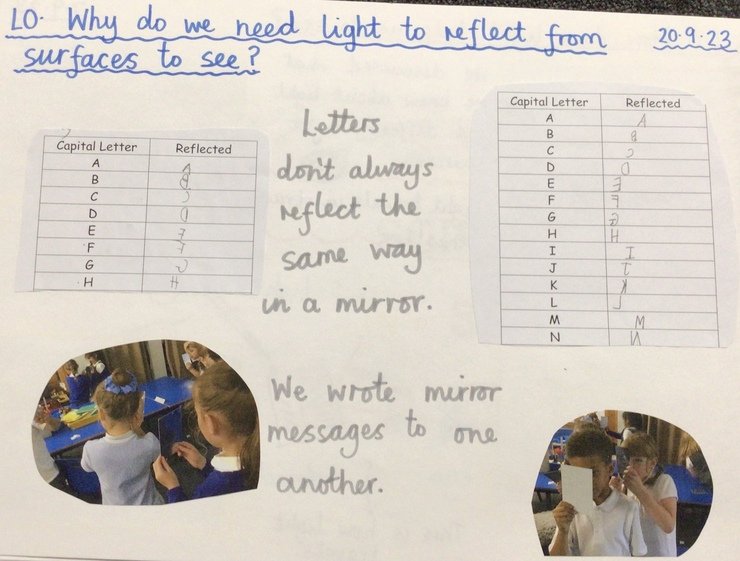 LO. Why do we need light to reflect from 20.9.23
surfaces to see?
Capital Letter Reflected
A A
B
C
D
E
F
G
H H
Letters
don't always
reflect the
same way
in a mirror.
Capital Letter Reflected
A A
B
C
D
E
F
G
H H
I I
J
K
L
M M
N
We wrote mirror
messages to one
another.